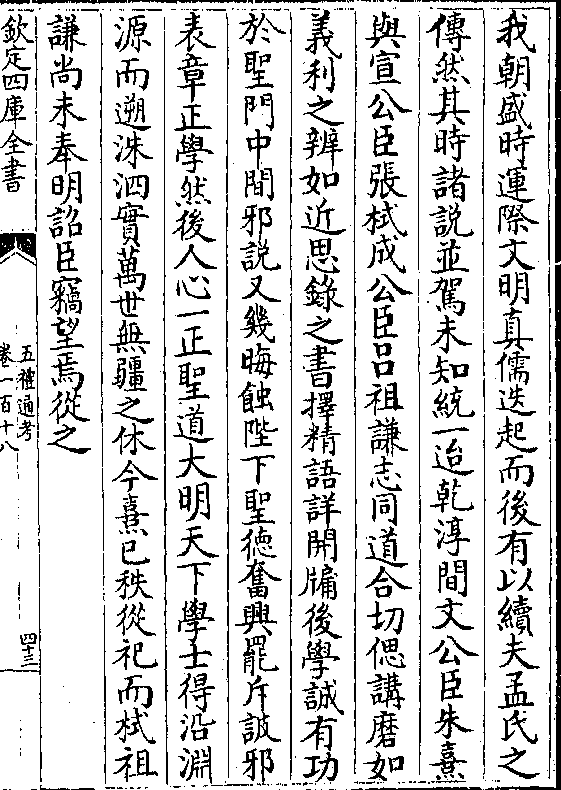 我朝盛時運際文明真儒迭起而後有以續夫孟氏之
傳然其時諸説並駕未知統一迨乾淳間文公臣朱熹
與宣公臣張栻成公臣吕祖謙志同道合切偲講磨如
義利之辨如近思錄之書擇精語詳開牖後學誠有功
於聖門中間邪説又幾晦蝕陛下聖德奮興罷斥詖邪
表章正學然後人心一正聖道大明天下學士得沿淵
源而遡洙泗實萬世無疆之休今熹已秩從祀而栻祖
謙尚未奉明詔臣竊望焉從之
欽定四庫全書
五禮通考
卷一百十八
四十三